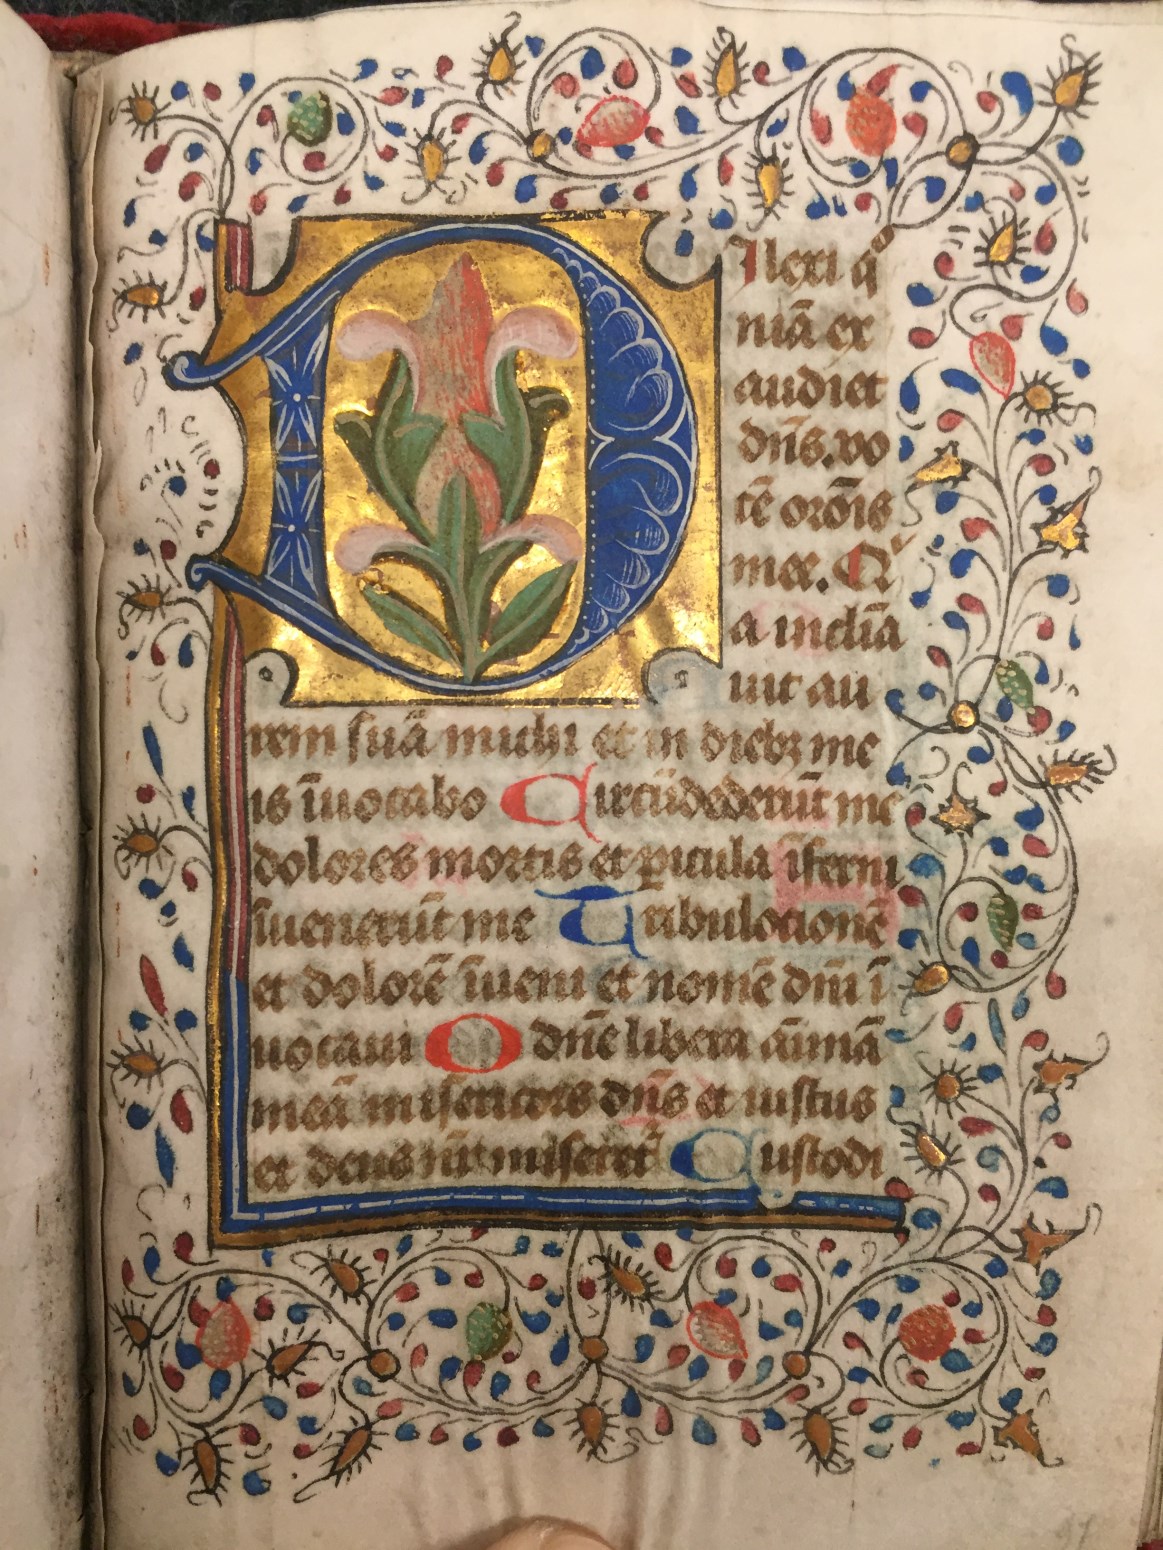 DIlexi q̄
niā ex
audiet
dn̄s.vo
cē oroīs
mee. Q
a inclīa
uit au
rem suā michi et in diebꝫ me
is īuocabo Circūdederūt me
dolores mortis et ꝑicula īferni
īuenerūt me Tribulocionē
et dolorē īueni et nomē dn̄i ī
uocaui O dn̄e libera aīmā
meā misericors dn̄s et iustus
et deus nr̄ miseret᷑ Custodi